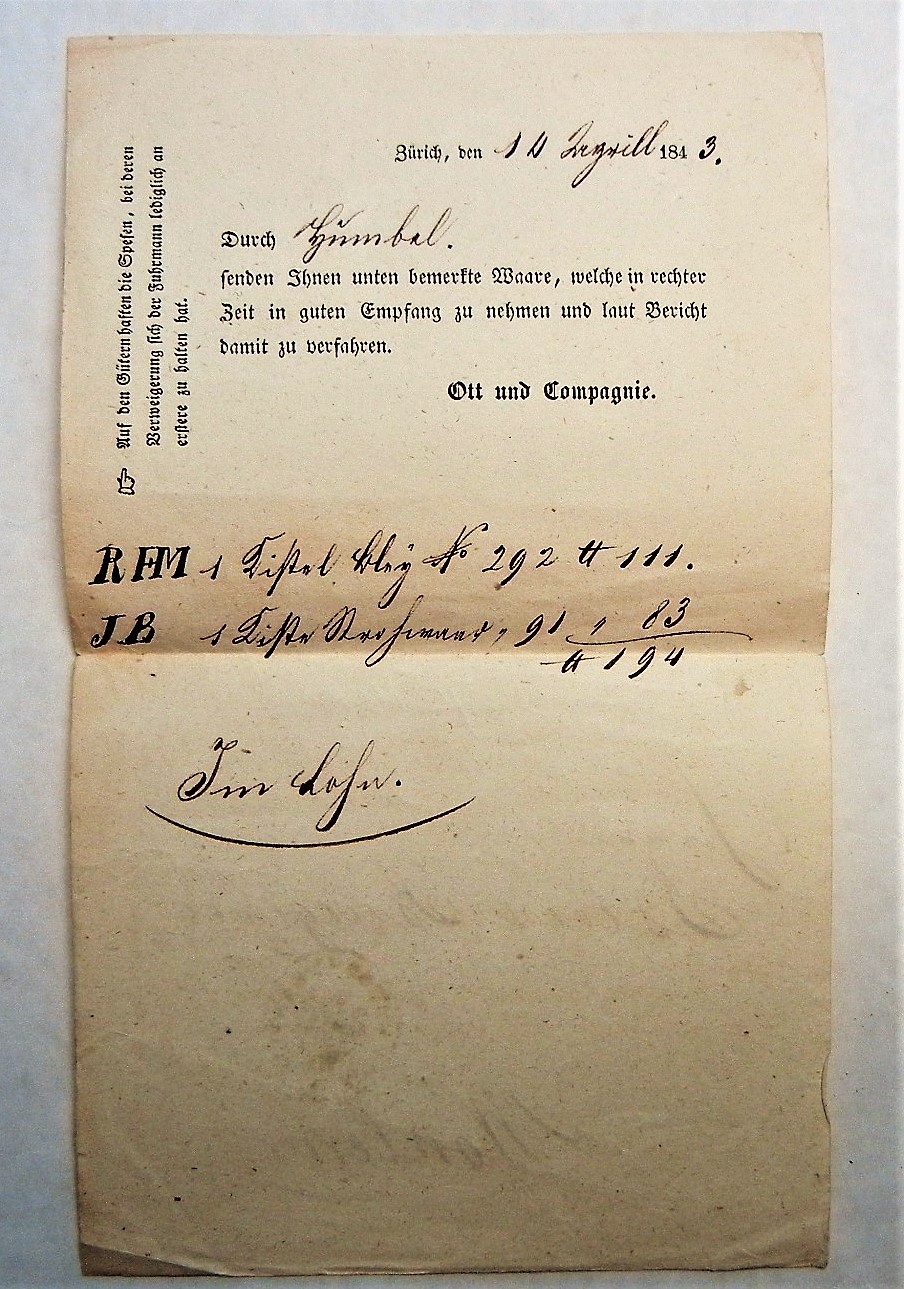 Zürich, den 14 Aprill 1843.
Durch Humbel.
senden Ihnen unten bemerkte Waare, welche in rechter
Zeit in guten Empfang zu nehmen und laut Bericht
damit zu verfahren.
Ott und Compagnie.
☞ Auf den Gütern haften die Spesen, bei deren
Verweigerung sich der Fuhrmann lediglich an
erstere zu halten hat.
RFM 1 Kistel Bley No 292 ℔ 111.
JB 1 Kiste Strohwaar " 91 " 83
℔ 194
Im Lohn.